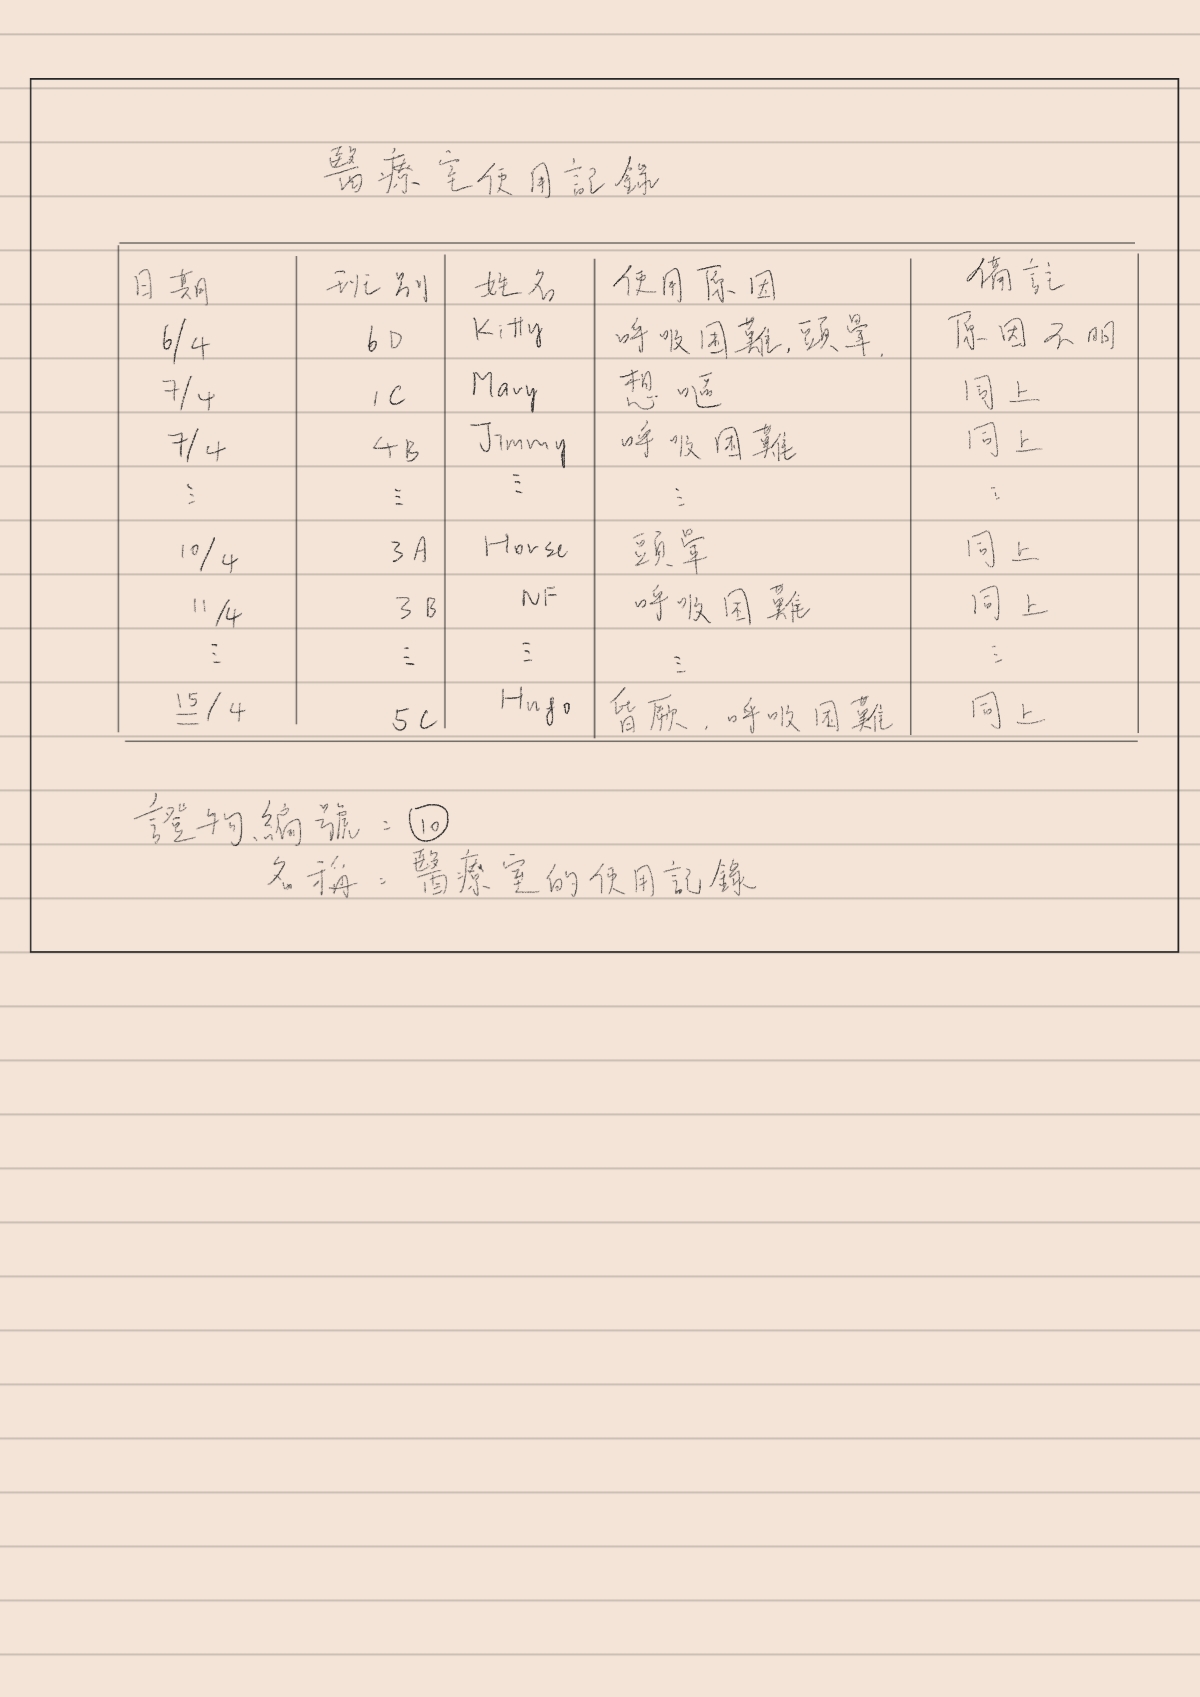 醫療室使用記錄
日期 班別 姓名 使用原因 備註
6/4 6D Kitty 呼吸困難,頭暈. 原因不明
7/4 1C Mary 想嘔 同上
7/4 4B Jimmy 呼吸困難 同上
⋮ ⋮ ⋮ ⋮ ⋮
10/4 3A Horse 頭暈 同上
11/4 3B NF 呼吸困難 同上
⋮ ⋮ ⋮ ⋮ ⋮
15/4 5C Hugo 昏厥,呼吸困難 同上
證物編號:⑩
名稱:醫療室的使用記錄